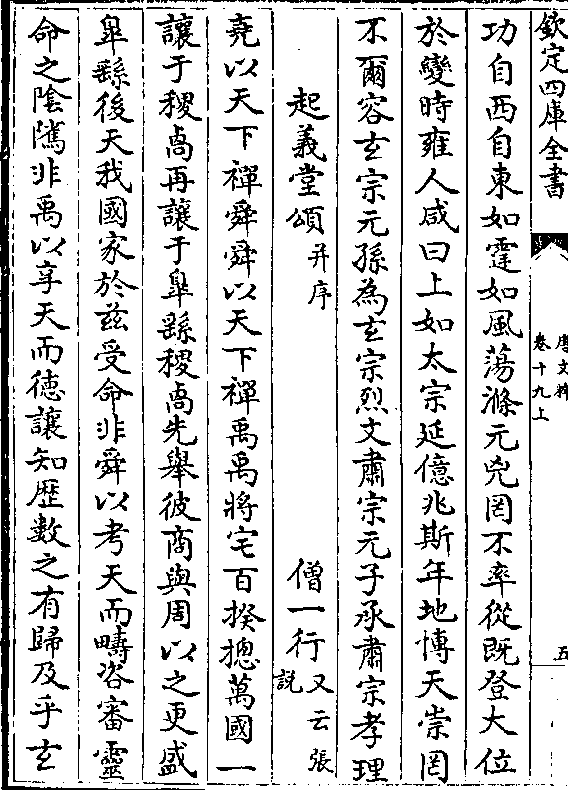 欽定四庫全書
唐文粹
卷十九上
五
功自西自東如霆如風蕩滌元兇罔不率從既登大位
於變時雍人咸曰上如太宗延億兆斯年地博天崇罔
不爾容玄宗元孫為玄宗烈文肅宗元子承肅宗孝理
起義堂頌并序 僧一行又云張說
堯以天下禪舜舜以天下禪禹禹將宅百揆揔萬國一
讓于稷卨再讓于臯繇稷卨先舉彼商與周以之更盛
臯繇後天我國家於兹受命非舜以考天而疇咨審靈
命之隂隲非禹以享天而徳讓知歴數之有歸及乎玄